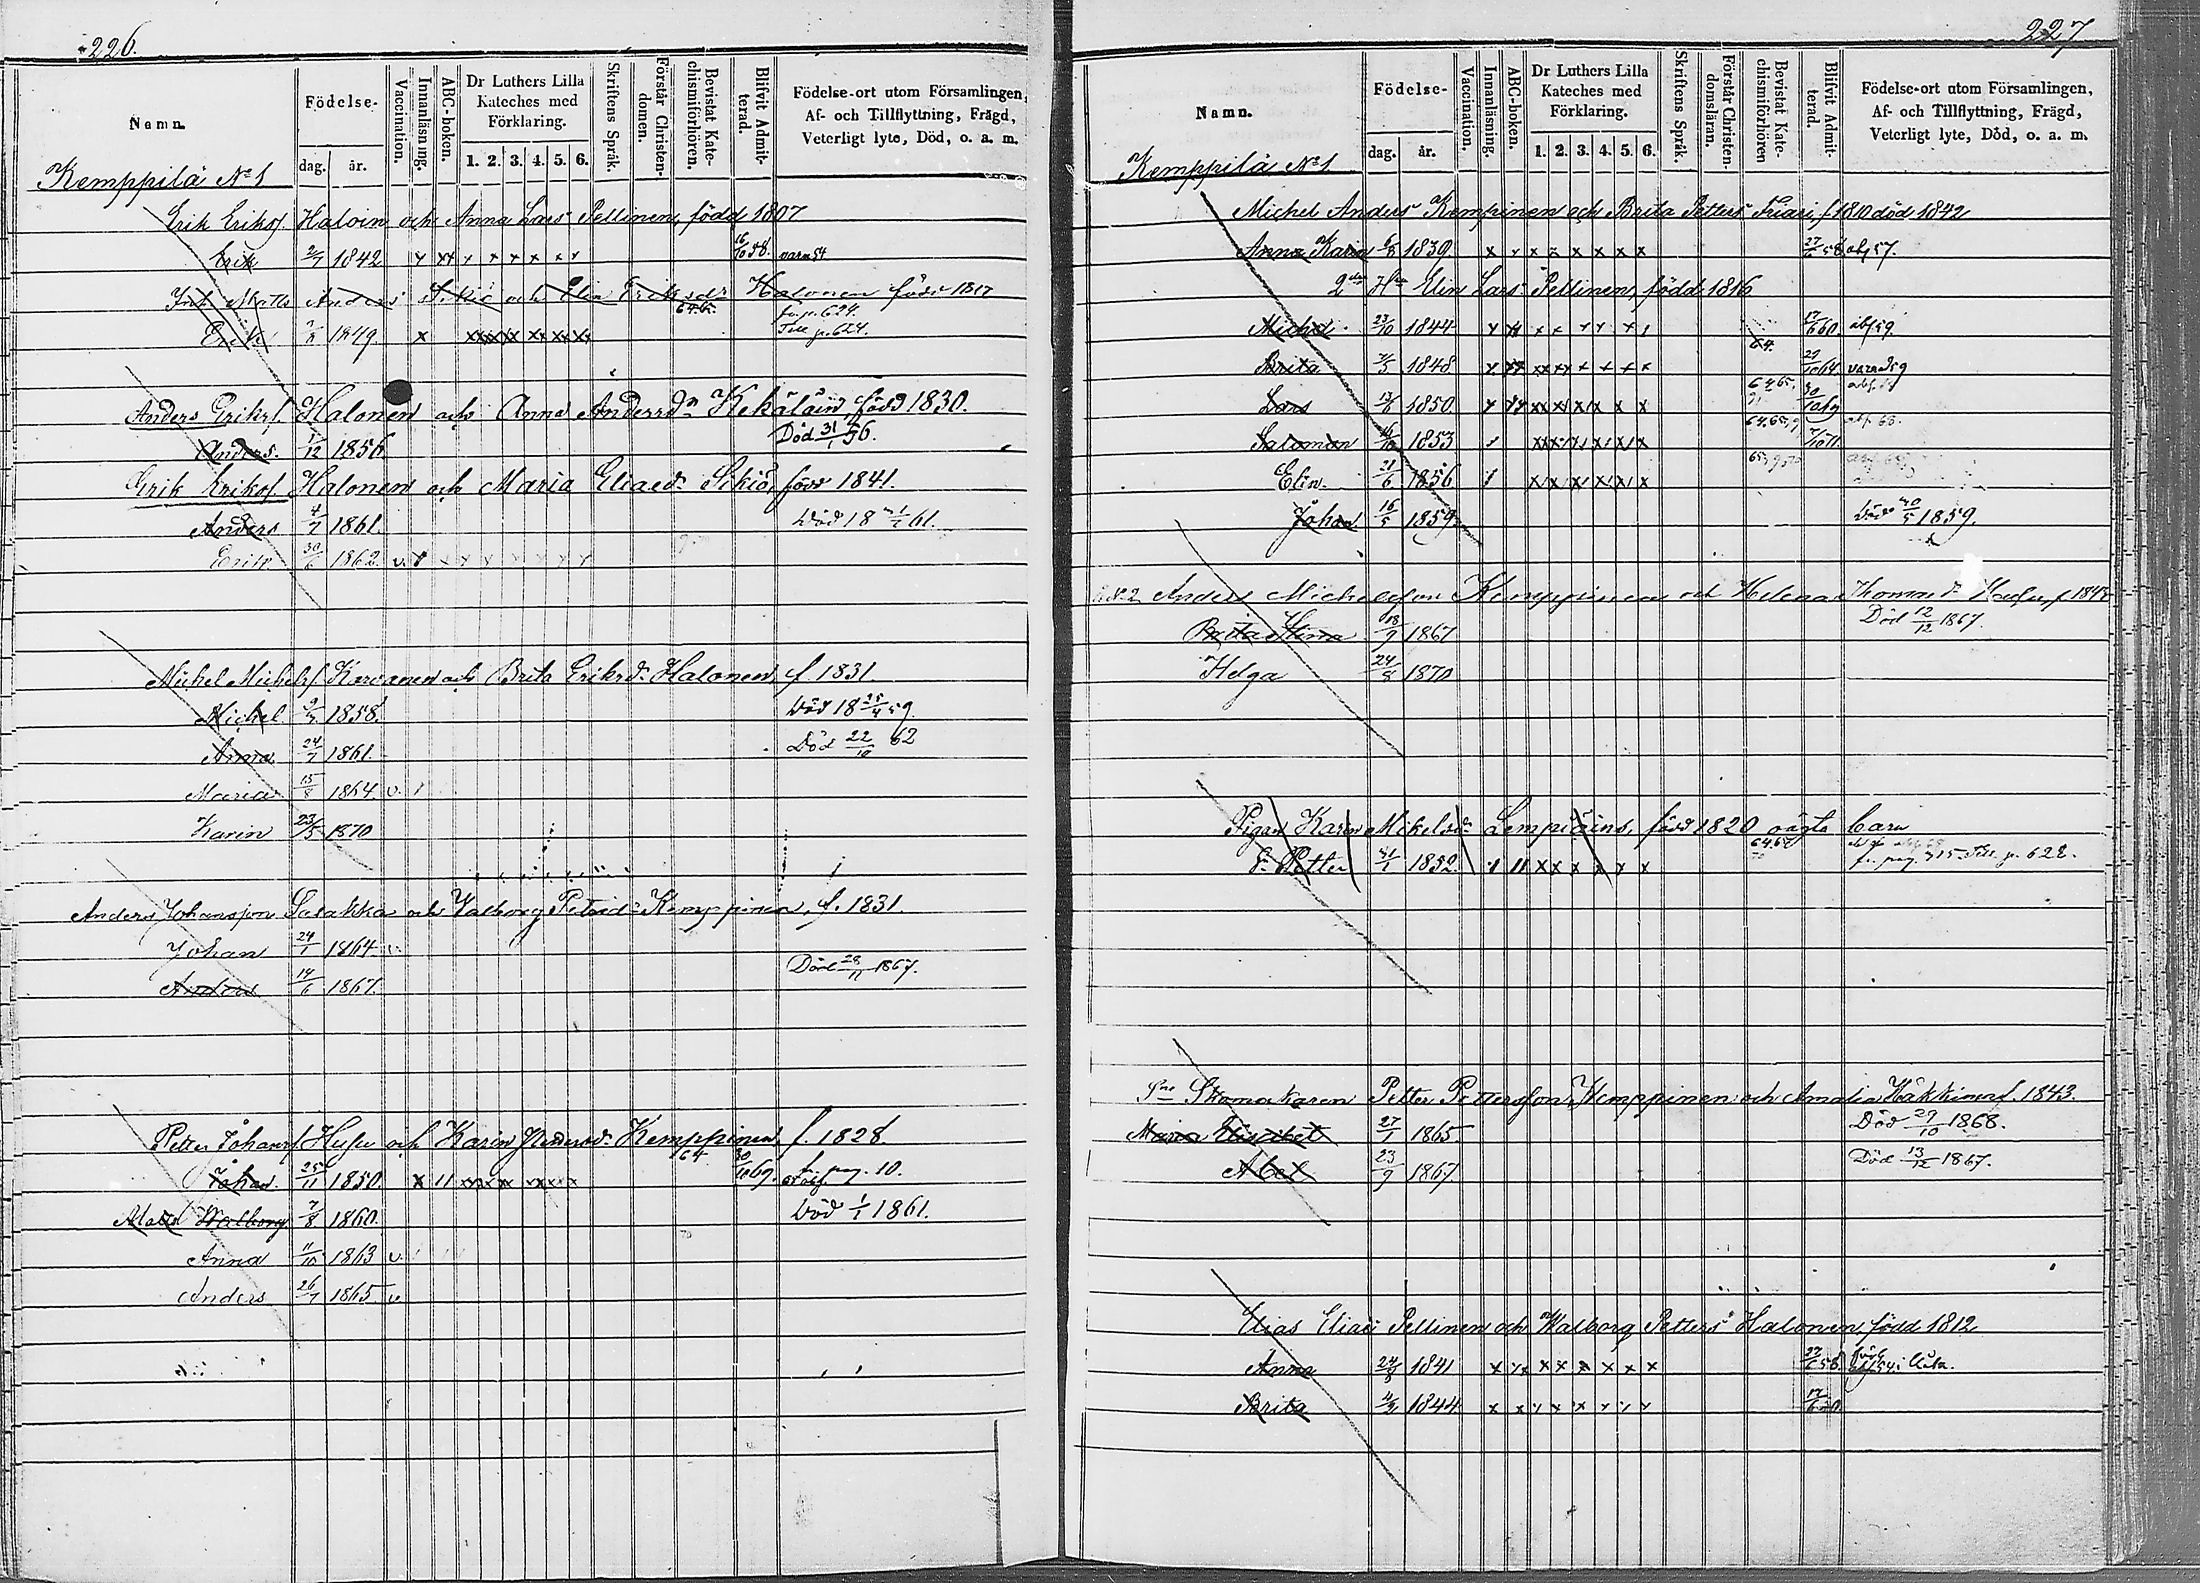 226.
Namn.
Födelse-
dag. år.
Vaccination.
Innanläsning.
ABC-boken.
Dr Luthers Lilla Kateches med Förklaring.
1. 2. 3. 4. 5. 6.
Skriftens Språk.
Förstår Christendomen.
Bevistat Katechismiförhören.
Blifvit Admitterad.
Födelse-ort utom Församlingen,
Af- och Tillflyttning, Frägd,
Veterligt lyte, Död, o. a. m.
Kemppilä No 1
Erik Eriksf. Haloin och Anna Lars Pellinen, född 1807
Erik 2/7 1842 x xx x x x x x x 16/10 58.
Matts Anders Sikiö och Elin Eriksdr Halonen född 1817
64.65. fr. p. 624.
Erik 1849. x Till p. 624.
Anders Eriksf. Halonen och Anna Andersdn Kekäläin, född 1830.
Anders. 1/12 1856. Död 31/1 56.
Erik Eriksf Halonen och Maria Eliaed. Sikiö, född 1841.
Anders 4/7 1861. Död 18 61.
Erik 30/6 1862. v. x x x x x x x x
Mickel Michelsf Keranen och Brita Eriksd. Halonen, f. 1831.
Michel. 1858. Död 18 25/4 59.
Anna 24/7 1861. Död 22/10 62
Maria 15/8 1864. v.
Karin 23/5 1870
Anders Johansson och Valborg Petrid. Kemppinen, f. 1831.
Johan 24/1 1864. v.
Anders 14/6 1867. Död 28/11 1867.
Petter Johansf Husu och Karin Andersd. Kemppinen, f. 1828.
Johan. 25/11 1850. x 64 30/10 69. fr. pag. 10.
Walborg 7/8 1860. Död 1/1 1861.
Anna 11/10 1863 v.
Anders 26/7 1865 v
227
Namn.
Födelse-
dag. år.
Vaccination.
Innanläsning.
ABC-boken.
Dr Luthers Lilla Kateches med Förklaring.
1. 2. 3. 4. 5. 6.
Skriftens Språk.
Förstår Christendomsläran.
Bevistat Katechismiförhören
Blifvit Admitterad.
Födelse-ort utom Församlingen,
Af- och Tillflyttning, Frägd,
Veterligt lyte, Död, o. a. m.
Kemppilä No 1
Michel Anders Kempinen och Brita Petters f. 1810 död 1842
Anna Karin 1839 x x x x x x x x 27/6 58 abf 57.
2dra Hu Elin Lars Pellinen, född 1816
Michel 23/10 1844 x x x x x x x 17/6 60. abf 59.
Brita 1848 64. 29/10 64. varn d 59
Lars 1850. 64.65. 30/10 67
Salomon 1853 64.65.
Elin 21/6 1856
Johan 16/5 1859 Död 1859.
Anders Michelsson Kemppinen och Helena Thomasd. Husu, f. 1842
Brita Stina 18/9 1867 Död 12/12 1867.
Helga 24/8 1870
Pigan Karin Mikelsd. Lempiäins, född 1820 oägta barn
S. Petter 1852. 64.67 fr. pag. 715 Till p. 628.
Skomakaren Petter Pettersson Kemppinen och Amalia Häkkinen f. 1843.
Maria Elisabet 27/1 1865 Död 29/10 1868.
Abel 23/9 1867 Död 13/12 1867.
Elias Elias Pellinen och Walborg Petters Halonen, född 1812
Anna 24/8 1841 x x x x x x x x 27/6 58.
Brita 1844 x x x x x x x x 17/6 60.